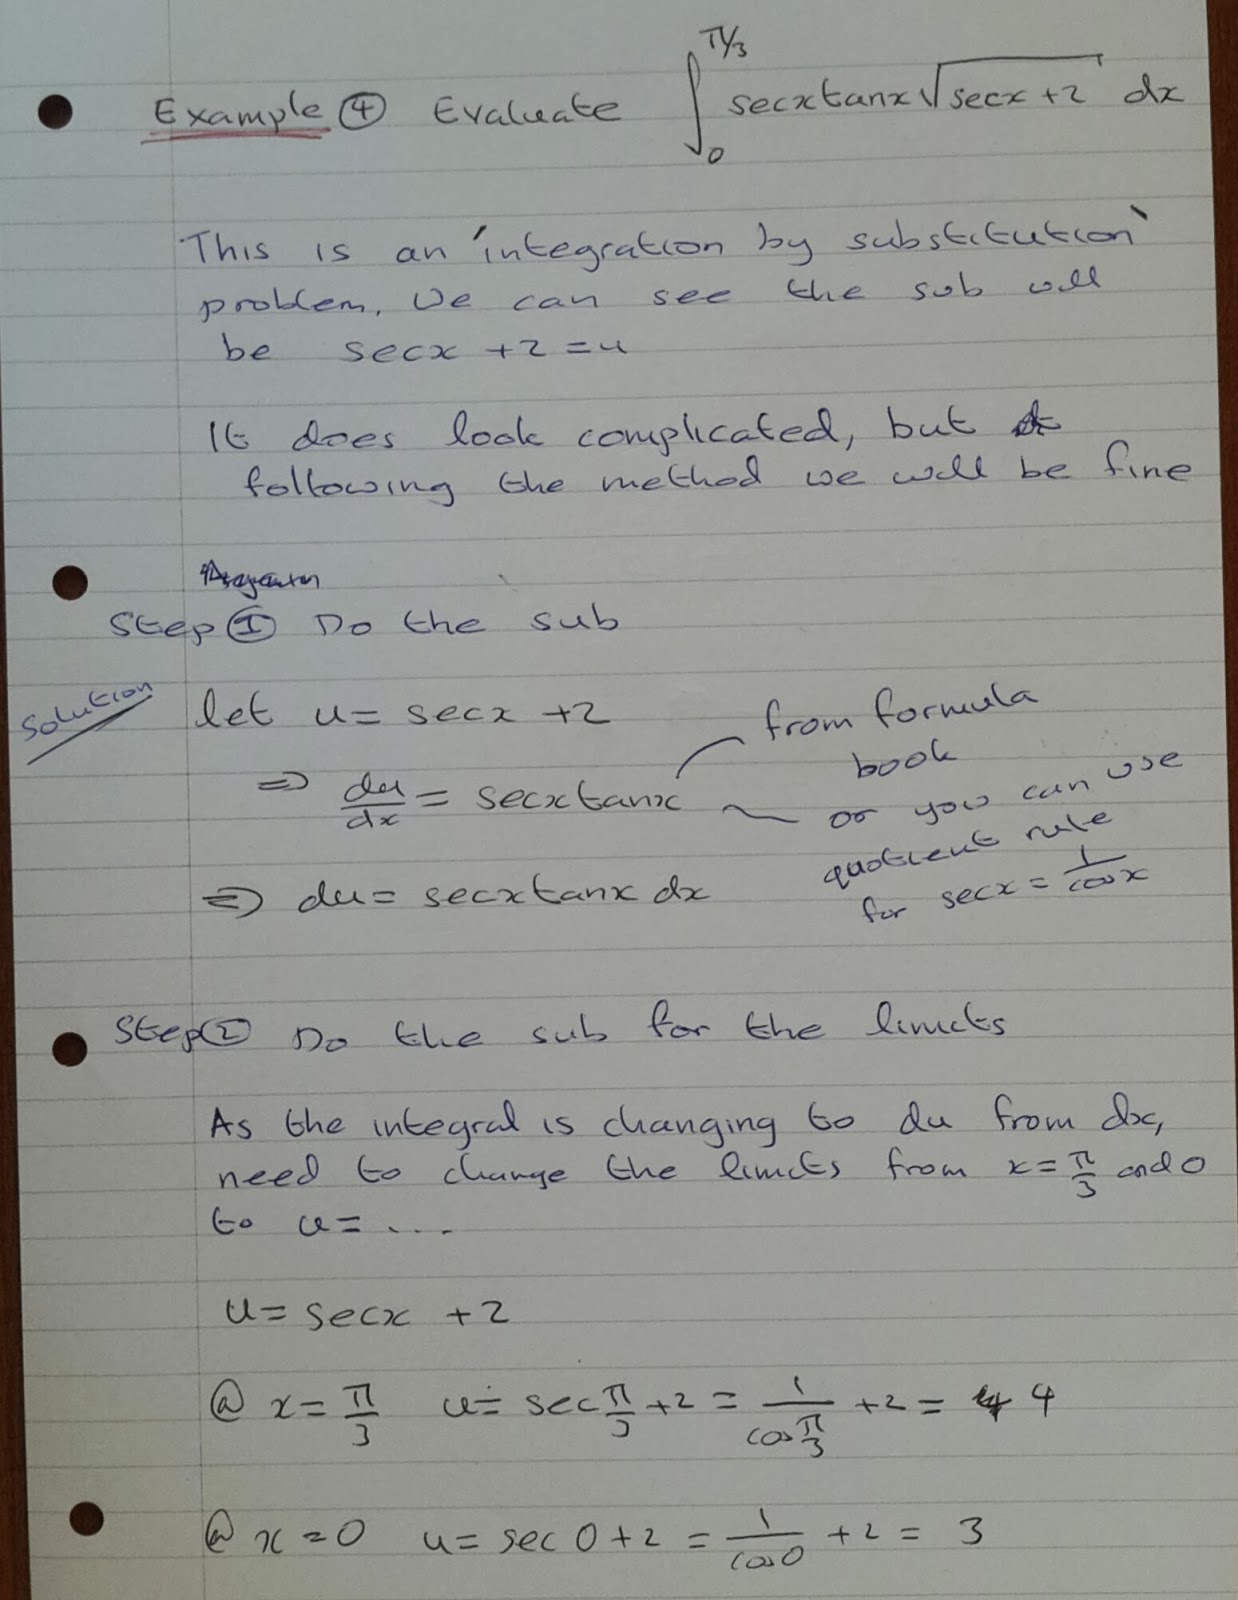 Example ④ Evaluate ∫₀^{π/3} secxtanx√(secx+2) dx
This is an 'integration by substitution'
problem, we can see the sub will
be secx +2 = u
It does look complicated, but
following the method we will be fine
Step ① Do the sub
Solution let u = secx +2
from formula
book
⇒ du/dx = secxtanx
or you can use
quotient rule
for secx = 1/cosx
⇒ du = secxtanx dx
Step ② Do the sub for the limits
As the integral is changing to du from dx,
need to change the limits from x = π/3 and 0
to u = ....
u = secx +2
@ x = π/3 u = sec π/3 +2 = 1/cos π/3 +2 = 4
@ x = 0 u = sec 0 + 2 = 1/cos0 + 2 = 3